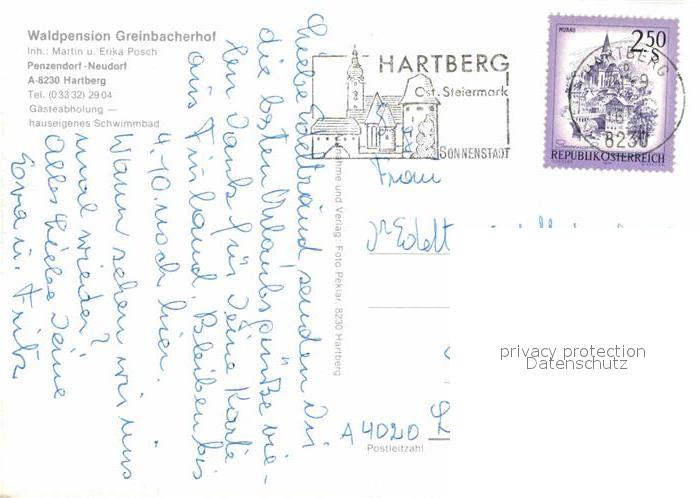 Waldpension Greinbacherhof
Inh.: Martin u. Erika Posch
Penzendorf-Neudorf
A-8230 Hartberg
Tel. (03332) 2904
Gästeabholung —
hauseigenes Schwimmbad
HARTBERG
Ost-Steiermark
SONNENSTADT
MURAU
2.50
S
REPUBLIK ÖSTERREICH
HARTBERG
8230
Liebe Edeltraud senden Dir
die besten Urlaubsgrüße vie-
len Dank für Deine Karte
aus Finland. Bleiben bis
4.10. noch hier.
Wann sehen wir uns
mal wieder?
Alles Liebe Deine
Eova u. Fritz
Aufnahme und Verlag: Foto Peklar, 8230 Hartberg
Frau
A 4020 L
Postleitzahl
privacy protection
Datenschutz